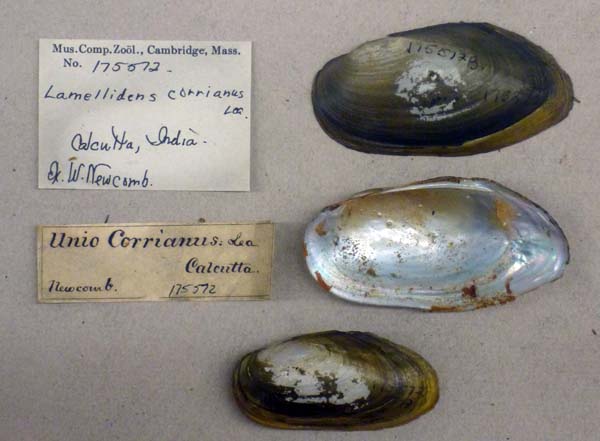 Mus.Comp.Zoöl., Cambridge, Mass.
No. 175572.
Lamellidens corrianus
Lea.
Calcutta, India.
Ex. W. Newcomb.
Unio Corrianus: Lea
Calcutta.
Newcomb. 175572